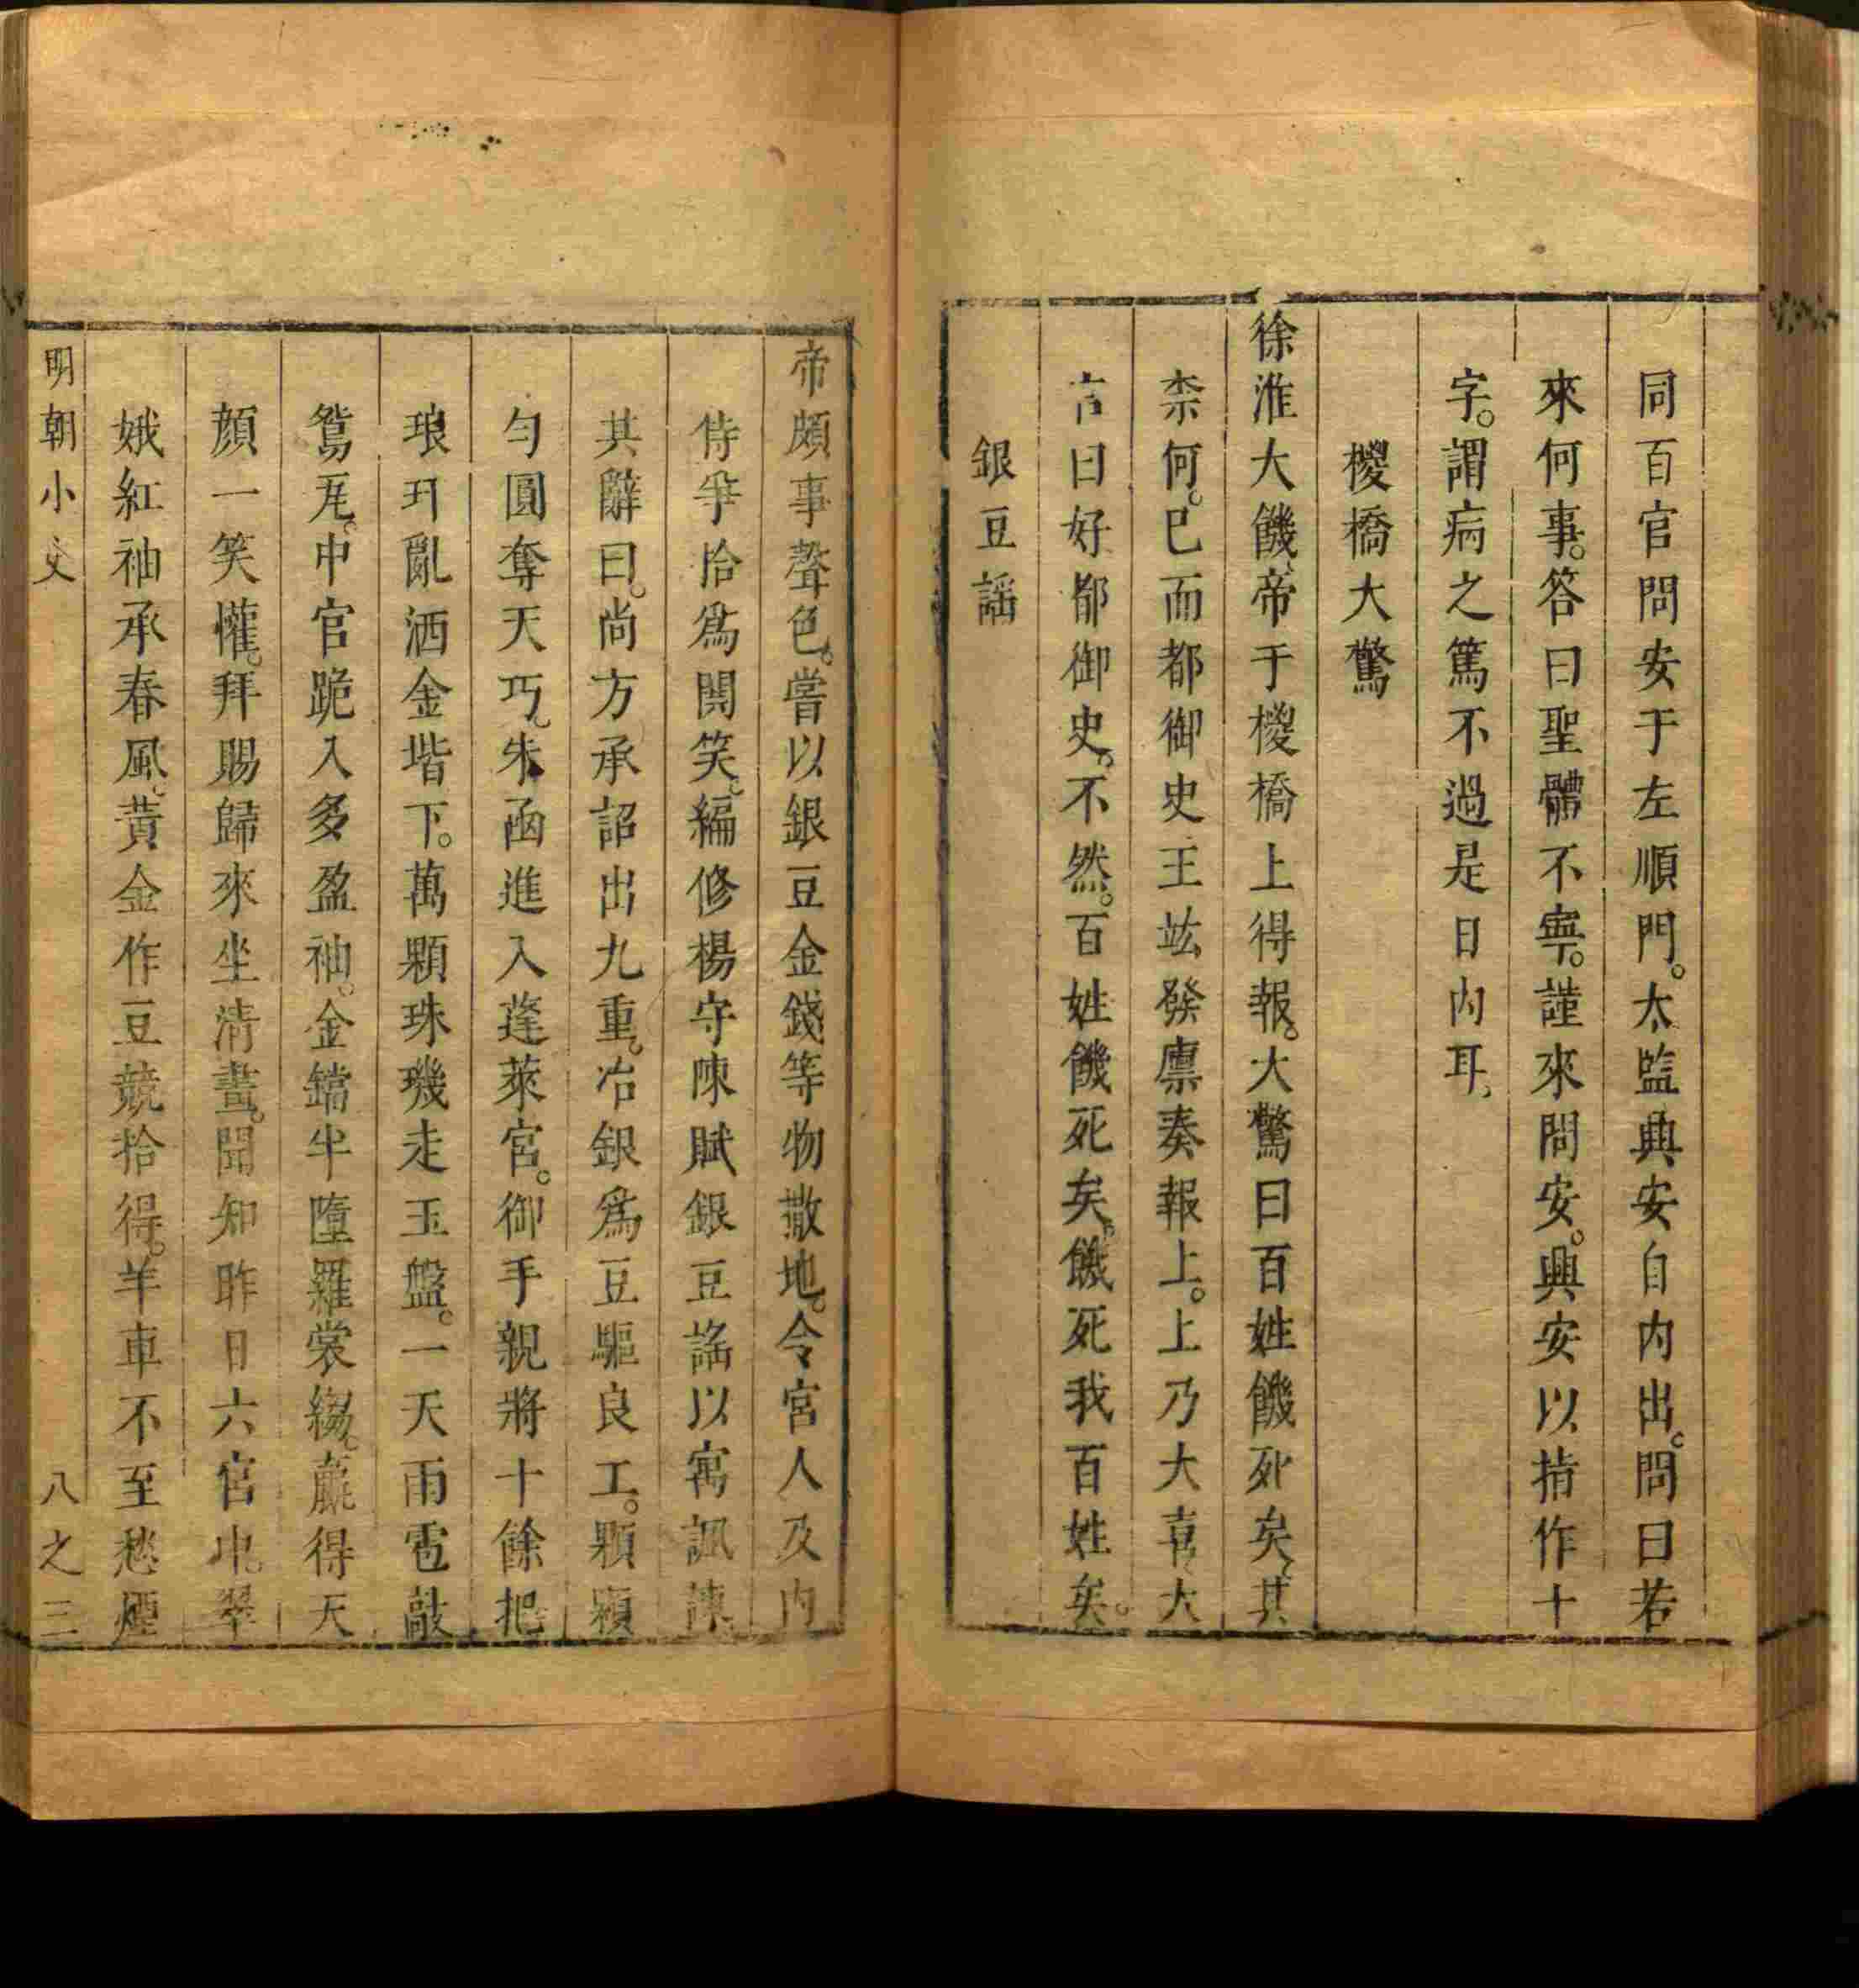 同百官問安于左順門。太監典安自内出。問曰若
來何事。答曰聖體不寧。謹來問安。興安以指作十
字。謂病之篤不過是日内耳。
椶橋大驚
徐淮大饑、帝于椶橋上得報。大驚曰百姓饑死矣、其
柰何。已而都御史王竑發廪奏報上。上乃大喜、大
言曰好都御史。不然。百姓饑死矣。饑死我百姓矣。
銀豆謡
帝頗事聲色。嘗以銀豆金錢等物撒地。令宮人及内
侍爭拾爲閧笑。編修楊守陳賦銀豆謡以寓諷諫
其辭曰。尚方承詔出九重。冶銀爲豆驅良工。顆顆
勻圓奪天巧。朱函進入蓬萊宮。御手親將十餘把
琅玕亂洒金堦下。萬顆珠璣走玉盤。一天雨雹敲
鴛瓦。中官跪入多盈袖。金鐺半墮羅裳縐。贏得天
顔一笑懽。拜賜歸來坐清晝。聞知昨日六宮中。翠
娥紅袖承春風。黃金作豆競拾得。羊車不至愁煙
明朝小史
八之三